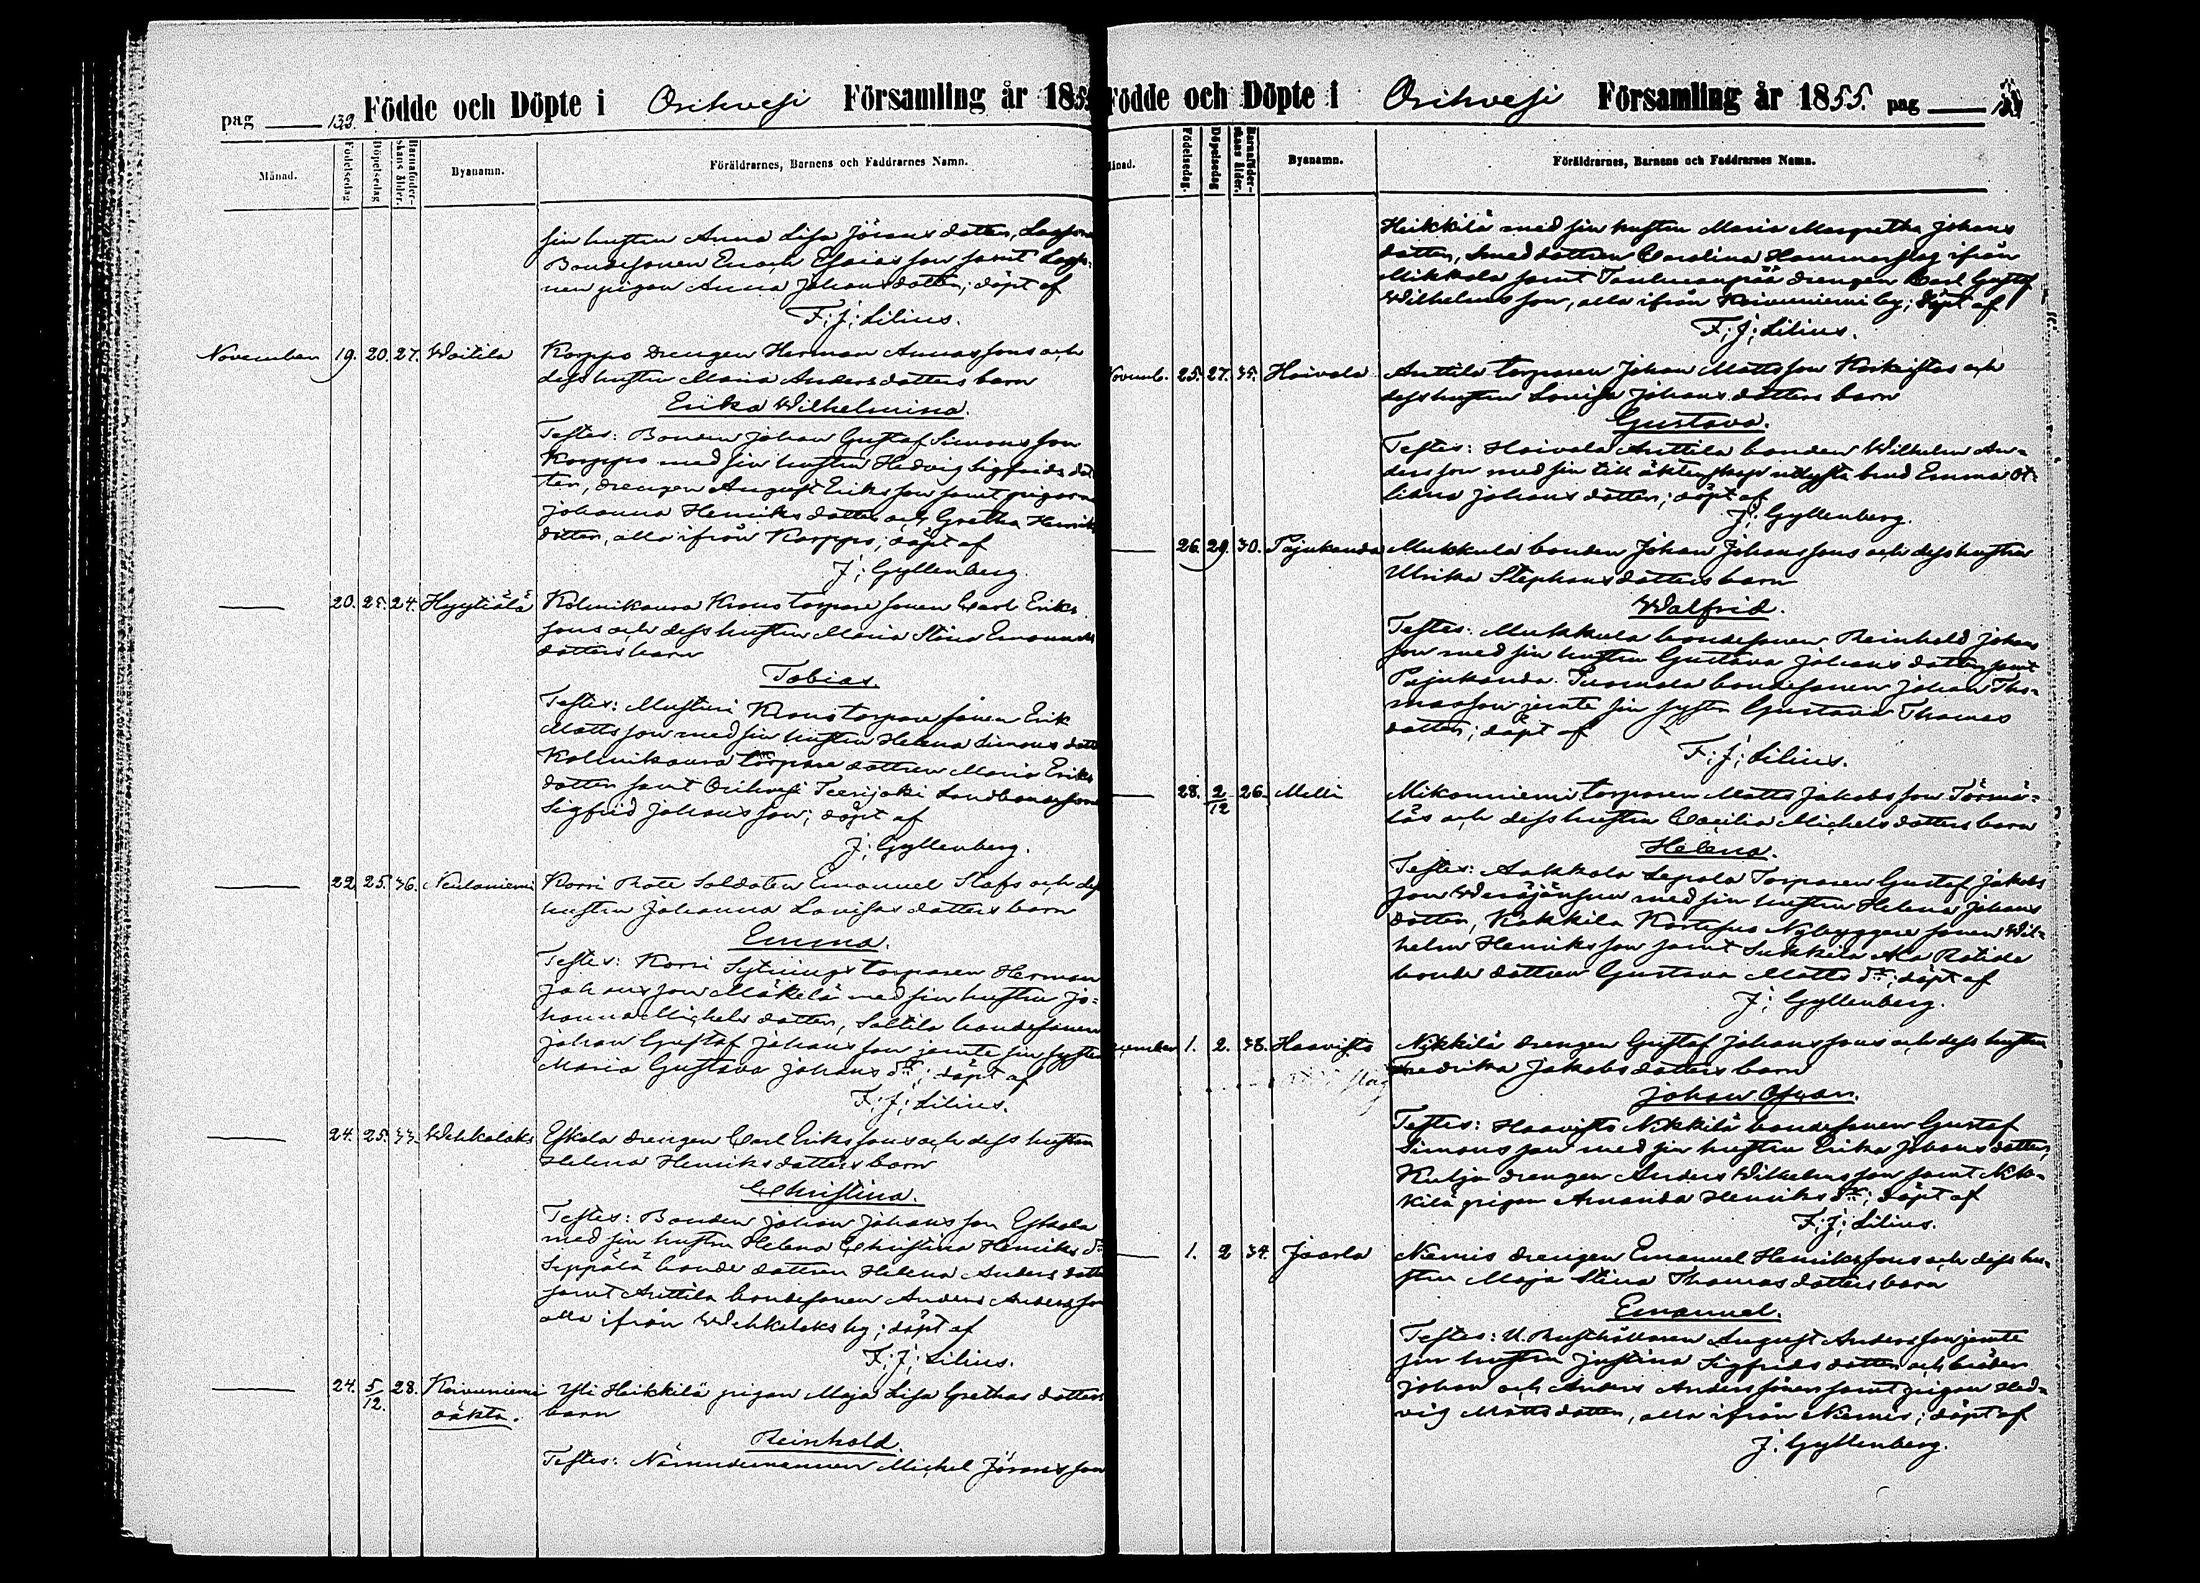 pag 139. Födde och Döpte i Orihvesi Församling år 1855
Månad. Födelsedag. Döpelsedag. Barnaföderskans ålder. Byanamn. Föräldrarnes, Barnens och Faddrarnes Namn.
sin hustru Anna Lisa Jörans dotter,
Bondesonen Enoch Esaias son samt
pigan Anna Johans dotter; döpt af
F; J; Lilius.
November 19. 20. 27. Woitila Korppo drengen Herman Annas sons och
dess hustru Maria Anders dotters barn
Erika Wilhelmina.
Testes: Bonden Johan Gustaf Simons son
Korppo med sin hustru Hedvig Sigfrids dot-
ter, drengen August Eriks son samt pigorna
Johanna Henriks dotter och Gretha Henriks
dotter, alla ifrån Korppo; döpt af
J; Gyllenberg.
20. 25. 24. Hyytiälä Kolunkaura Kronotorpare sonen Carl Eriks
sons och dess hustru Maria Stina Emanuels
dotters barn
Tobias.
Testes: Kronotorpare sonen Erik
Matts son med sin hustru Helena Simons dotter
torpare dottren Maria Eriks
dotter samt Orihvesi Teerijoki Landbonde sonen
Sigfrid Johans son; döpt af
J; Gyllenberg.
22. 25. 36. Neulaniemi Korri Rote Soldaten Emanuel Stafs och dess
hustru Johanna Lovisas dotters barn
Emma.
Testes: Korri Sytnings torparen Herman
Johans son Mäkelä med sin hustru Jo-
hanna Michels dotter, Saltila bondesonen
Johan Gustaf Johans son jemte sin syster
Maria Gustava Johans dr; döpt af
F; J; Lilius.
24. 25. 33. Wehkalaks Eskola drengen Carl Eriks sons och dess hustru
Helena Henriks dotters barn
Christina.
Testes: Bonden Johan Johans son Eskola
med sin hustru Helena Christina Henriks dr
Seppälä bonde dottren Helena Anders dotter
samt Anttila bondesonen Anders Anders son
alla ifrån Wehkalaks by; döpt af
F; J; Lilius.
24. 5/12. 28. Koivuniemi Yli Heikkilä pigan Maja Lisa Grethas dotters
oäkta. barn
Reinhold.
Testes: Nämndemannen Michel Jörans son
Födde och Döpte i Orihvesi Församling år 1855. pag
Månad. Födelsedag. Döpelsedag Barnaföderskans ålder. Byanamn. Föräldrarnes, Barnens och Faddrarnes Namn.
Heikkilä med sin hustru Maria Margretha Johans
dotter, smed dottren Carolina Hammerslag ifrån
Mikkola samt drengen Carl Gustaf
Wilhelms son, alla ifrån Koivuniemi by; döpt af
F; J; Lilius.
Novemb. 25. 27. 35. Hoivala Anttila torparen Johan Matts son och
dess hustru Lovisa Johans dotters barn
Gustava.
Testes: Hoivala Anttila bonden Wilhelm An-
ders son med sin till äktenskap utlysta brud Emma Ot-
liana Johans dotter; döpt af
J; Gyllenberg.
26. 29. 30. Pajukanda Mukkula bonden Johan Johans sons och dess hustru
Ulrika Stephans dotters barn
Walfrid.
Testes: Mukkula bondesonen Reinhold Johans
son med sin hustru Gustava Johans dotter samt
Pajukanda Tuomala bondesonen Johan Tho-
mas son jemte sin syster Gustava Thomas
dotter; döpt af
F; J; Lilius.
28. 2/12 26. Melli Mikonniemi torparen Matts Jakobs son Törmä-
läs och dess hustru Cæcilia Michels dotters barn
Helena.
Testes: Aakkola Lepola Torparen Gustaf Jakobs
son med sin hustru Helena Johans
dotter, Kakkila Nybyggare sonen Wil-
helm Henriks son samt Sukkila Ala Rotida
bonde dottren Gustava Matts dr; döpt af
J; Gyllenberg.
December 1. 2. 38. Haavisto Nikkilä drengen Gustaf Johans sons och dess hustru
Fredrika Jakobs dotters barn
Johan Oskar.
Testes: Haavisto Nikkilä bondesonen Gustaf
Simons son med sin hustru Erika Johans dotter,
Kulju drengen Anders Wilhelms son samt Nik-
kilä pigan Amanda Henriks dr; döpt af
F; J; Lilius.
1. 2 34. Jaarla Niemis drengen Emanuel Henriks sons och dess hu-
stru Maja Stina Thomas dotters barn
Emanuel.
Testes: U. Rusthållaren August Anders son jemte
sin hustru Justina Sigfrids dotter och bröder
Johan och Anders Anders söner samt pigan Hed-
vig Matts dotter, alla ifrån Niemis; döpt af
J; Gyllenberg.